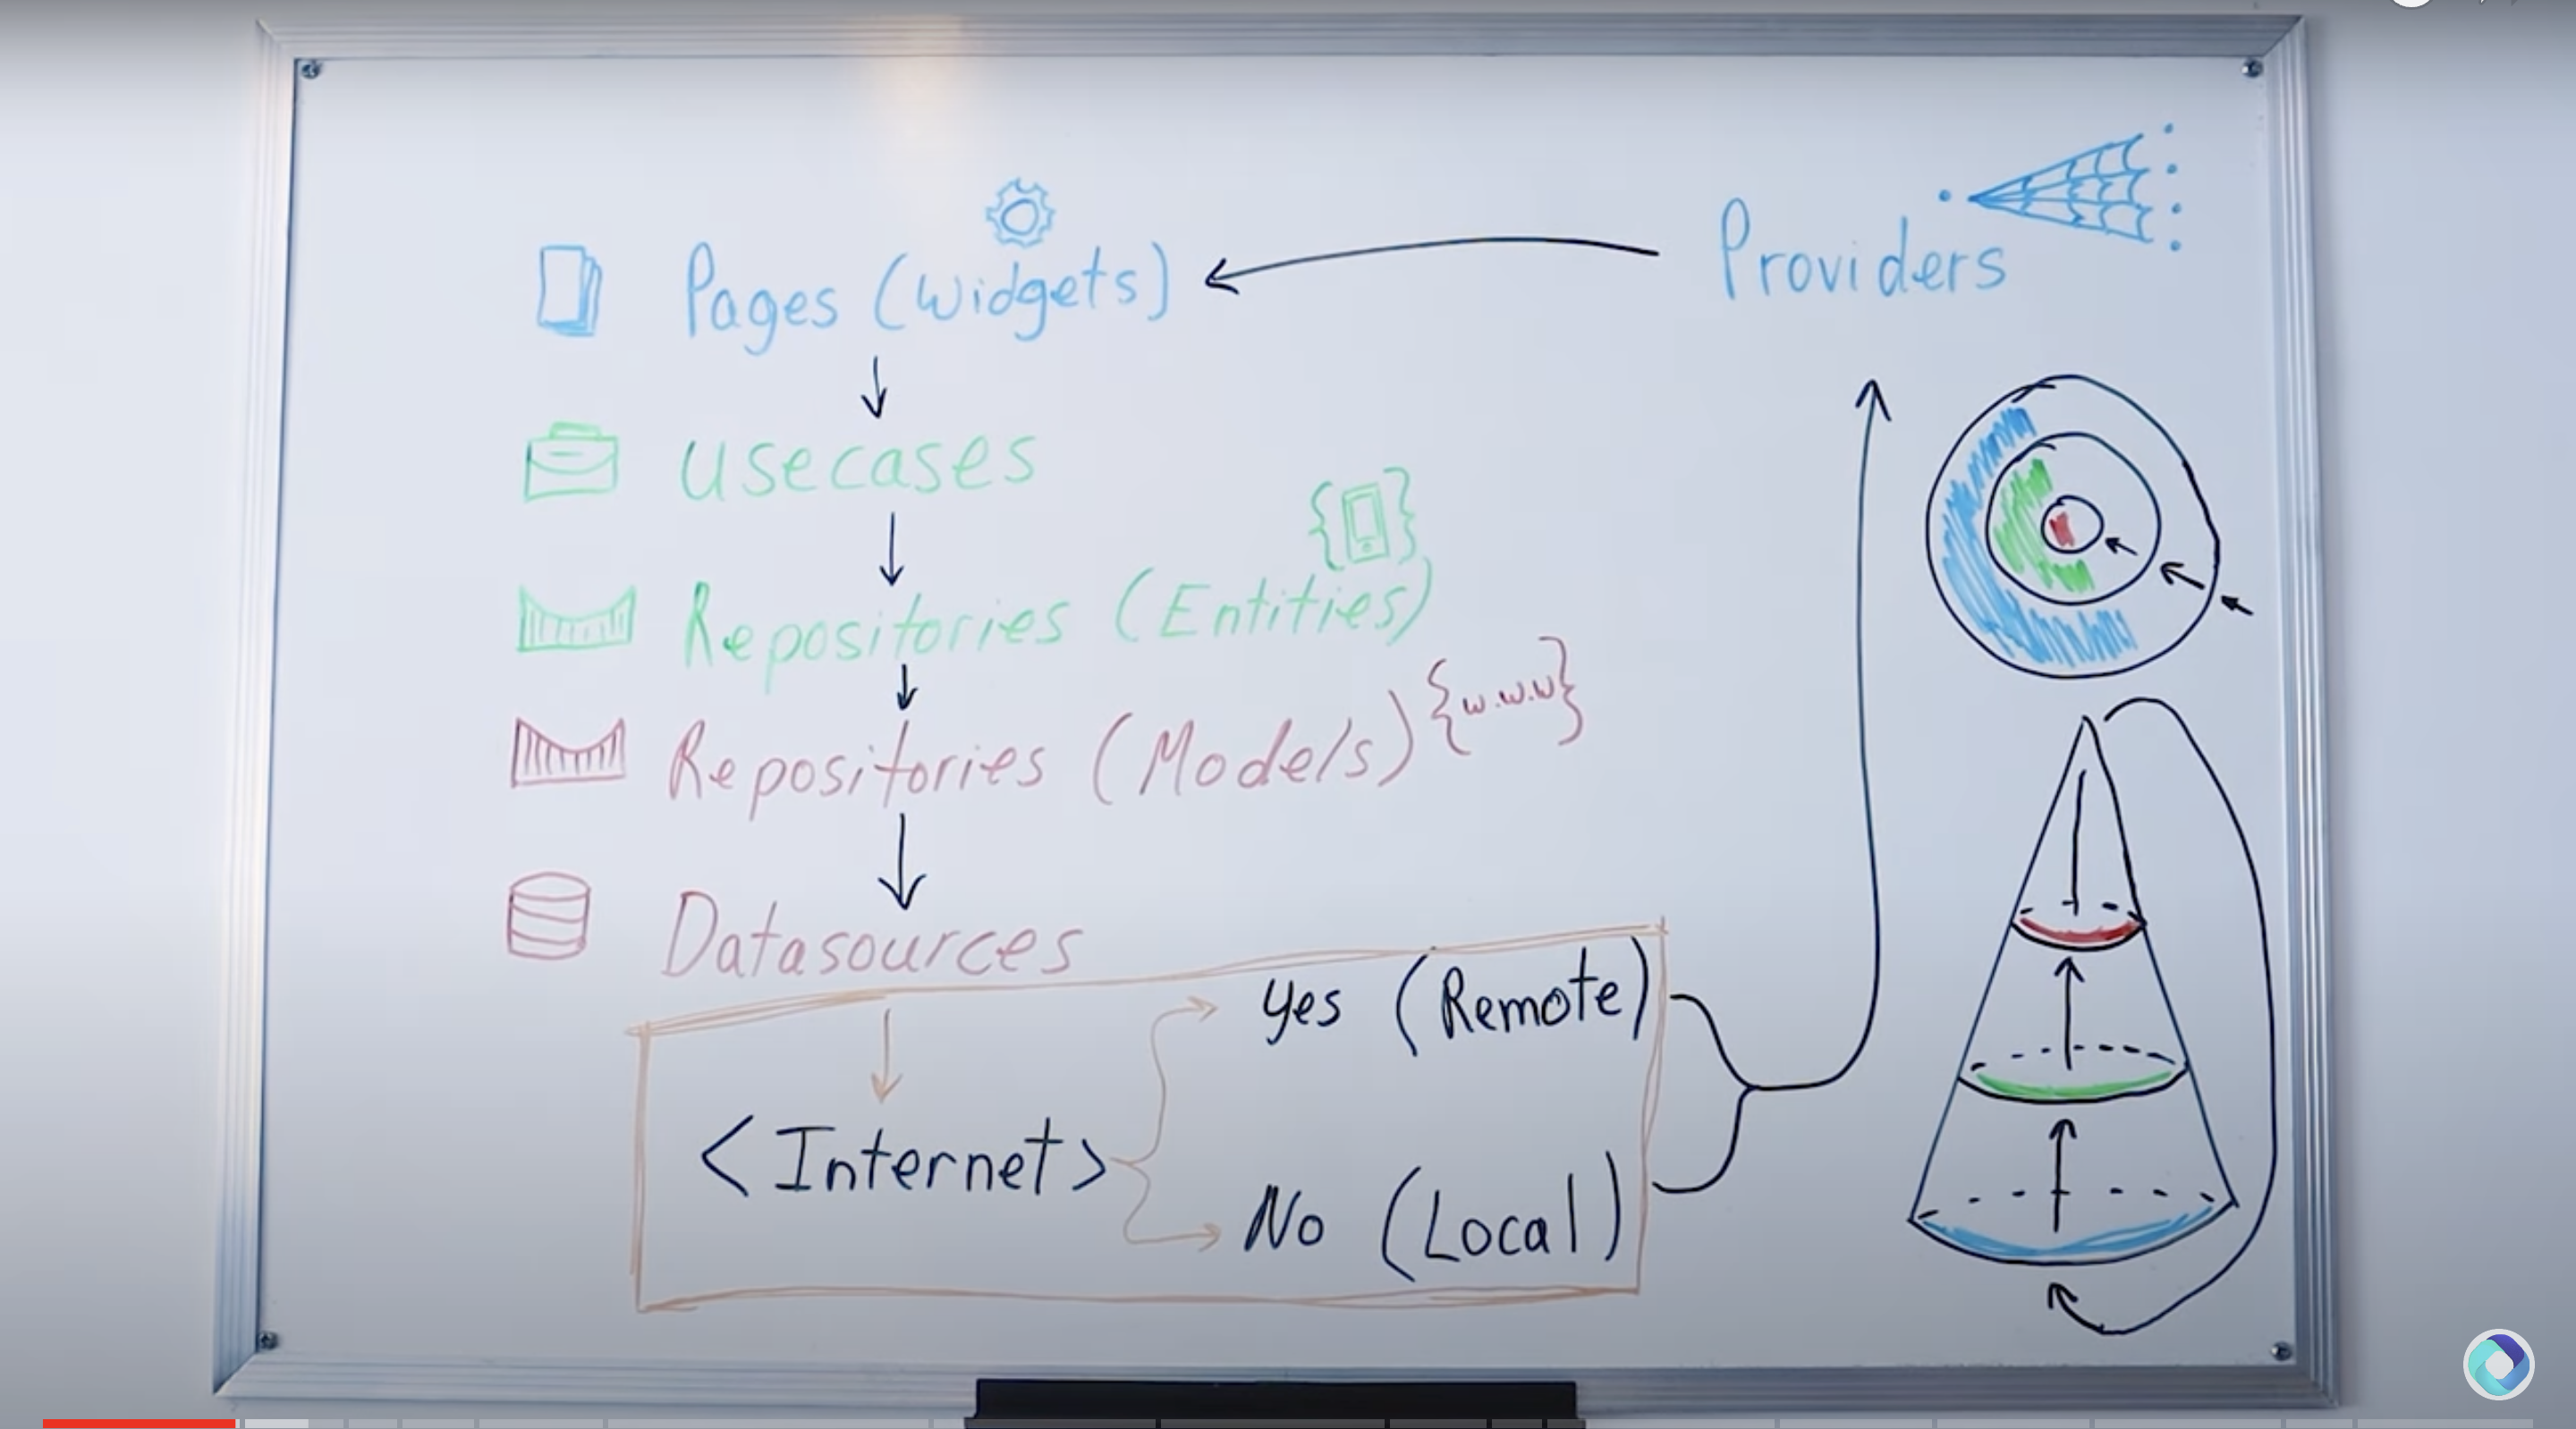 Pages (Widgets)
Providers
Usecases
Repositories (Entities)
Repositories (Models) {w.w.w}
Datasources
Yes (Remote)
<Internet>
No (Local)